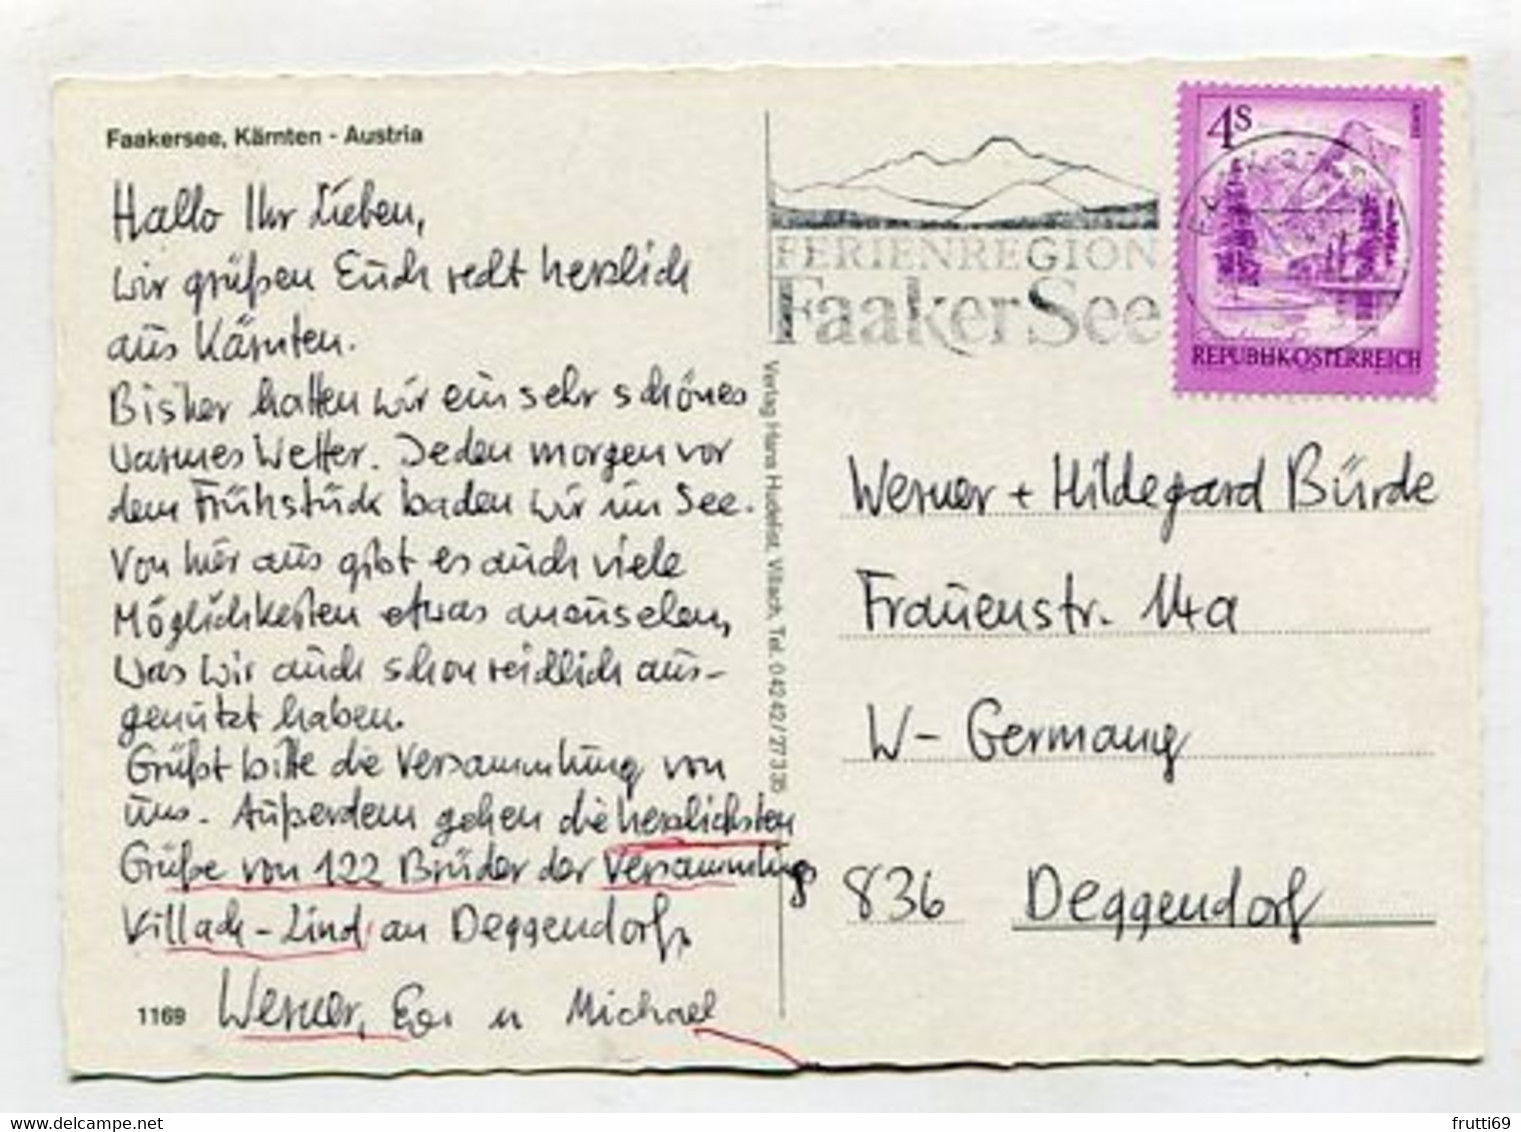 Faakersee, Kärnten - Austria
Hallo Ihr Lieben,
wir grüßen Euch recht herzlich
aus Kärnten.
Bisher hatten wir ein sehr schönes
warmes Wetter. Jeden morgen vor
dem Frühstück baden wir im See.
Von hier aus gibt es auch viele
Möglichkeiten etwas anzusehen,
was wir auch schon reichlich aus-
genützt haben.
Grüßt bitte die Versammlung von
uns. Außerdem gehen die herzlichsten
Grüße von 122 Brüder der Versammlung
Villach-Lind an Deggendorf,
Werner, u Michael
1169
Verlag Hans Hudelist, Villach, Tel. 0 42 42 / 27 3 35
FERIENREGION
Faaker See
4S
REPUBLIK ÖSTERREICH
Werner + Hildegard Bürde
Frauenstr. 14a
W- Germany
836 Deggendorf
www.delcampe.net
frutti69